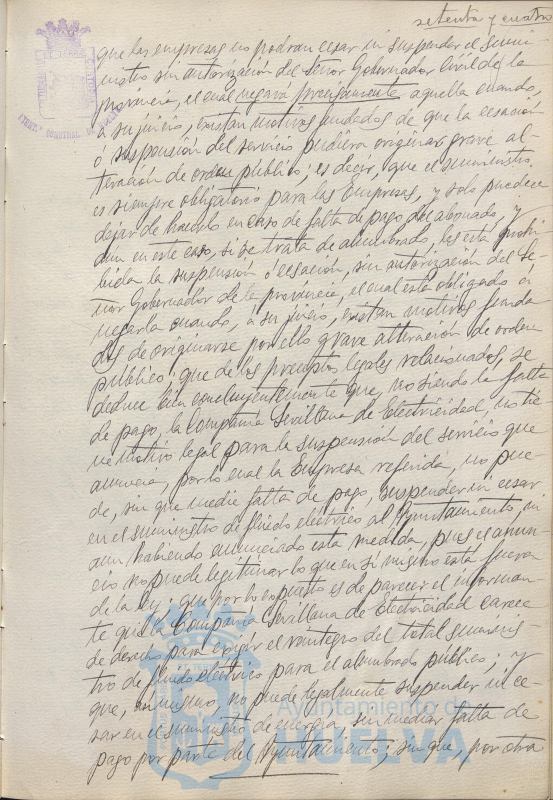 setenta y cuatro
que las empresas no podrán cesar ni suspender el sumi-
nistro sin autorización del Señor Gobernador Civil de la
provincia, el cual negará precisamente aquella cuando,
a su juicio, existan motivos fundados de que la cesación
ó suspensión del servicio pudiera originar grave al-
teración de orden público; es decir, que el suministro
es siempre obligatorio para las Empresas, y solo puede
dejar de hacerlo en caso de falta de pago del abonado, y
aun en este caso, si se trata de alumbrado, les está prohi-
bida la suspensión ó cesación, sin autorización del Se-
ñor Gobernador de la provincia, el cual está obligado á
negarla cuando, á su juicio, existan motivos funda
dos de originarse por ello grave alteración de orden
público; que de los preceptos legales relacionados, se
deduce bien concluyentemente que, no siendo la falta
de pago, la Compañía Sevillana de Electricidad, no tie
ne motivo legal para la suspensión del servicio que
anuncia, por lo cual la Empresa referida, no pue-
de, sin que medie falta de pago, suspender ni cesar
en el suministro de fluido eléctrico al Ayuntamiento, ni
aun habiendo anunciado esta medida, pues el anun-
cio no puede legitimar lo que en si mismo está fuera
de la ley; que por lo expuesto es de parecer el informan
te que la Compañía Sevillana de Electricidad carece
de derecho para exigir el reintegro del total suminis-
tro de fluido eléctrico para el alumbrado público; y
que, asimismo, no puede legalmente suspender ni ce-
sar en el suministro de energía sin mediar falta de
pago por parte del Ayuntamiento; sin que, por otra
Ayuntamiento de
HUELVA